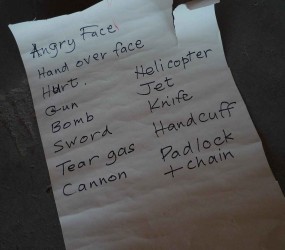 Angry Face
Hand over face
Hurt.
Gun
Bomb
Sword
Tear gas
Cannon
Helicopter
Jet
Knife
Handcuff
Padlock
+chain